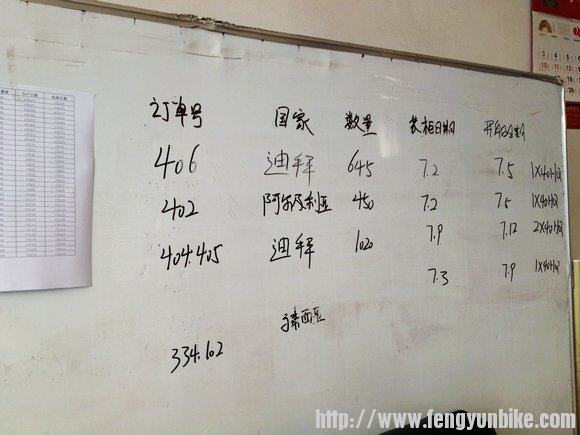 订单号 国家 数量 装柜日期 开船日期
406 迪拜 645 7.2 7.5 1X40HQ
402 阿尔及利亚 450 7.2 7.5 1X40HQ
404.405 迪拜 1020 7.9 7.12 2X40HQ
7.3 7.9 1X40HQ
334.102
http://www.fengyunbike.com